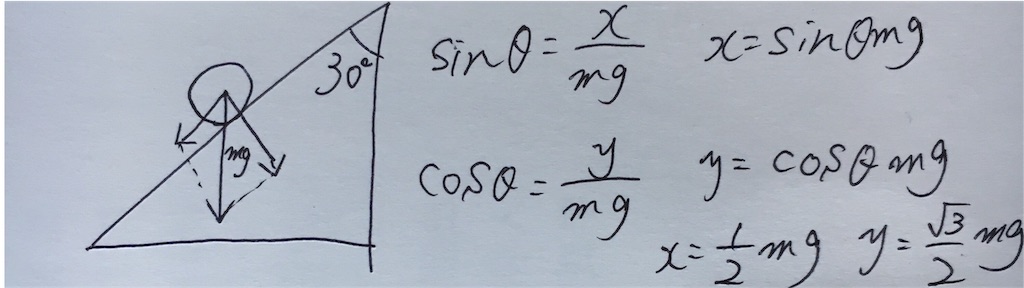 30°
mg
sinθ = x/mg x = sinθmg
cosθ = y/mg y = cosθmg
x = 1/2 mg y = √3/2 mg